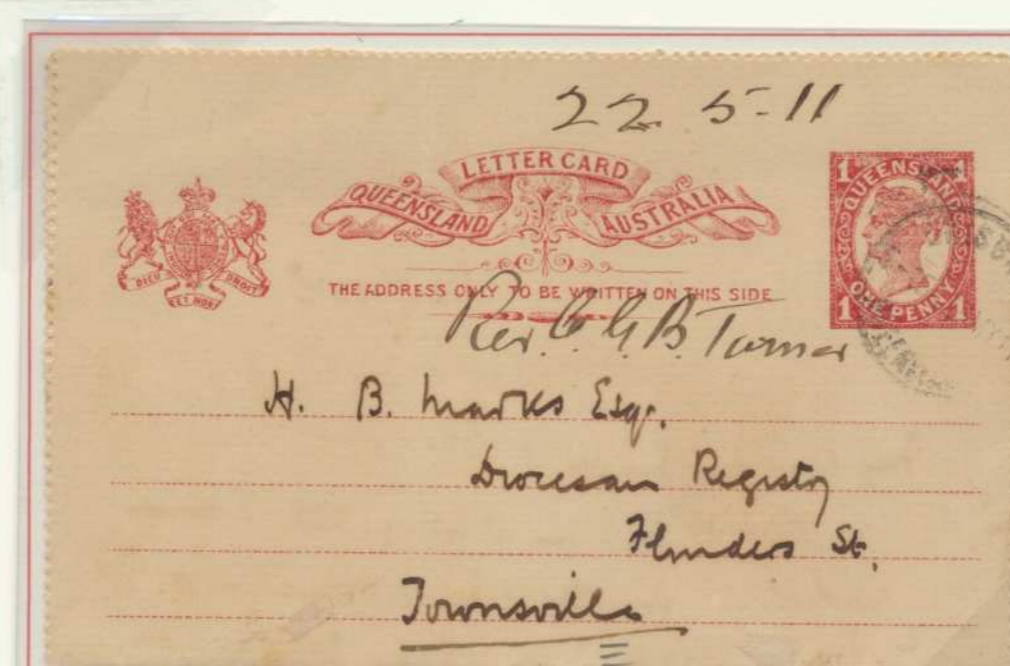 22 5-11
LETTER CARD
QUEENSLAND AUSTRALIA
DIEU ET MON DROIT
THE ADDRESS ONLY TO BE WRITTEN ON THIS SIDE
1 QUEENSLAND 1
1 ONE PENNY 1
Rev. C. G. B. Turner
H. B. Marks Esq.
Diocesan Registry
Flinders St.
Townsville